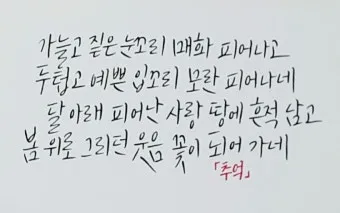 가늘고 짙은 눈꼬리 매화 피어나고
두텁고 예쁜 입꼬리 모란 피어나네
달 아래 피어난 사랑 땅에 흔적 남고
봄 위로 그리던 웃음 꽃이 되어 가네
「추억」